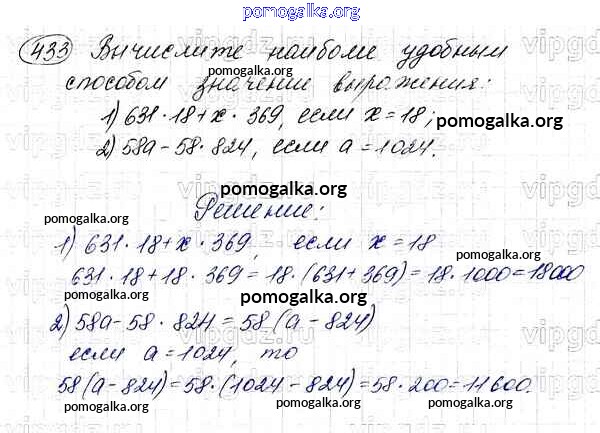 pomogalka.org
433 Вычислите наиболее удобным
способом значение выражения:
pomogalka.org
1) 631·18+x·369, если x=18;
pomogalka.org
2) 58a-58·824, если a=1024.
pomogalka.org
pomogalka.org
Решение:
pomogalka.org
1) 631·18+x·369, если x=18
pomogalka.org
631·18+18·369=18·(631+369)=18·1000=18000
pomogalka.org
2) 58a-58·824=58(a-824)
если a=1024, то
pomogalka.org
58(a-824)=58·(1024-824)=58·200=11600.
pomogalka.org
pomogalka.org